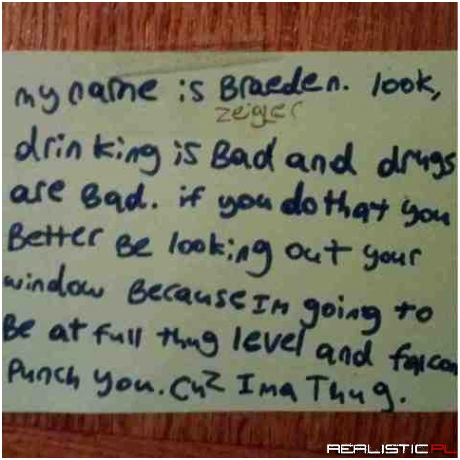 my name is Braeden. look,
zeigler
drinking is Bad and drugs
are Bad. if you do that you
Better Be looking out your
window Because Im going to
Be at full thug level and falcon
Punch you. Cuz Ima Thug.
REALISTIC.PL